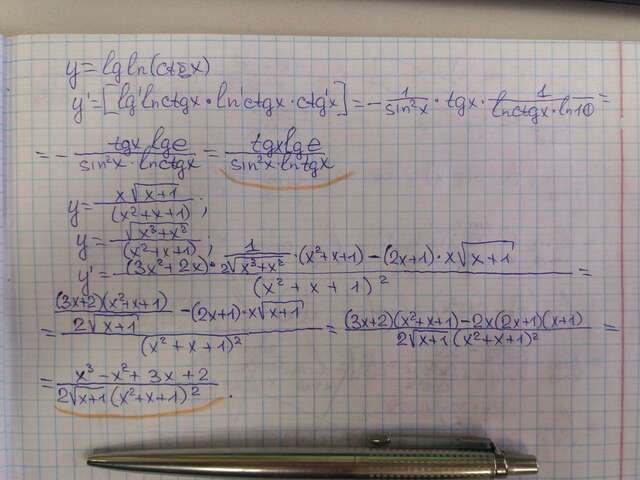 y = lg ln(ctgx)
y' = [lg'lnctgx · ln'ctgx · ctg'x] = - 1/sin²x · tgx · 1/(lnctgx · ln10) =
= - tgx lge/(sin²x · lnctgx) = tgxlge/(sin²x · lntgx)
y = x√(x+1)/(x²+x+1);
y = √(x³+x²)/(x²+x+1);
y' = ((3x²+2x) · 1/(2√(x³+x²)) · (x²+x+1) - (2x+1) · x√(x+1))/(x²+x+1)² =
= ((3x+2)(x²+x+1)/(2√(x+1)) - (2x+1) · x√(x+1))/(x²+x+1)² = ((3x+2)(x²+x+1) - 2x(2x+1)(x+1))/(2√(x+1)(x²+x+1)²) =
= (x³ - x² + 3x + 2)/(2√(x+1)(x²+x+1)²).